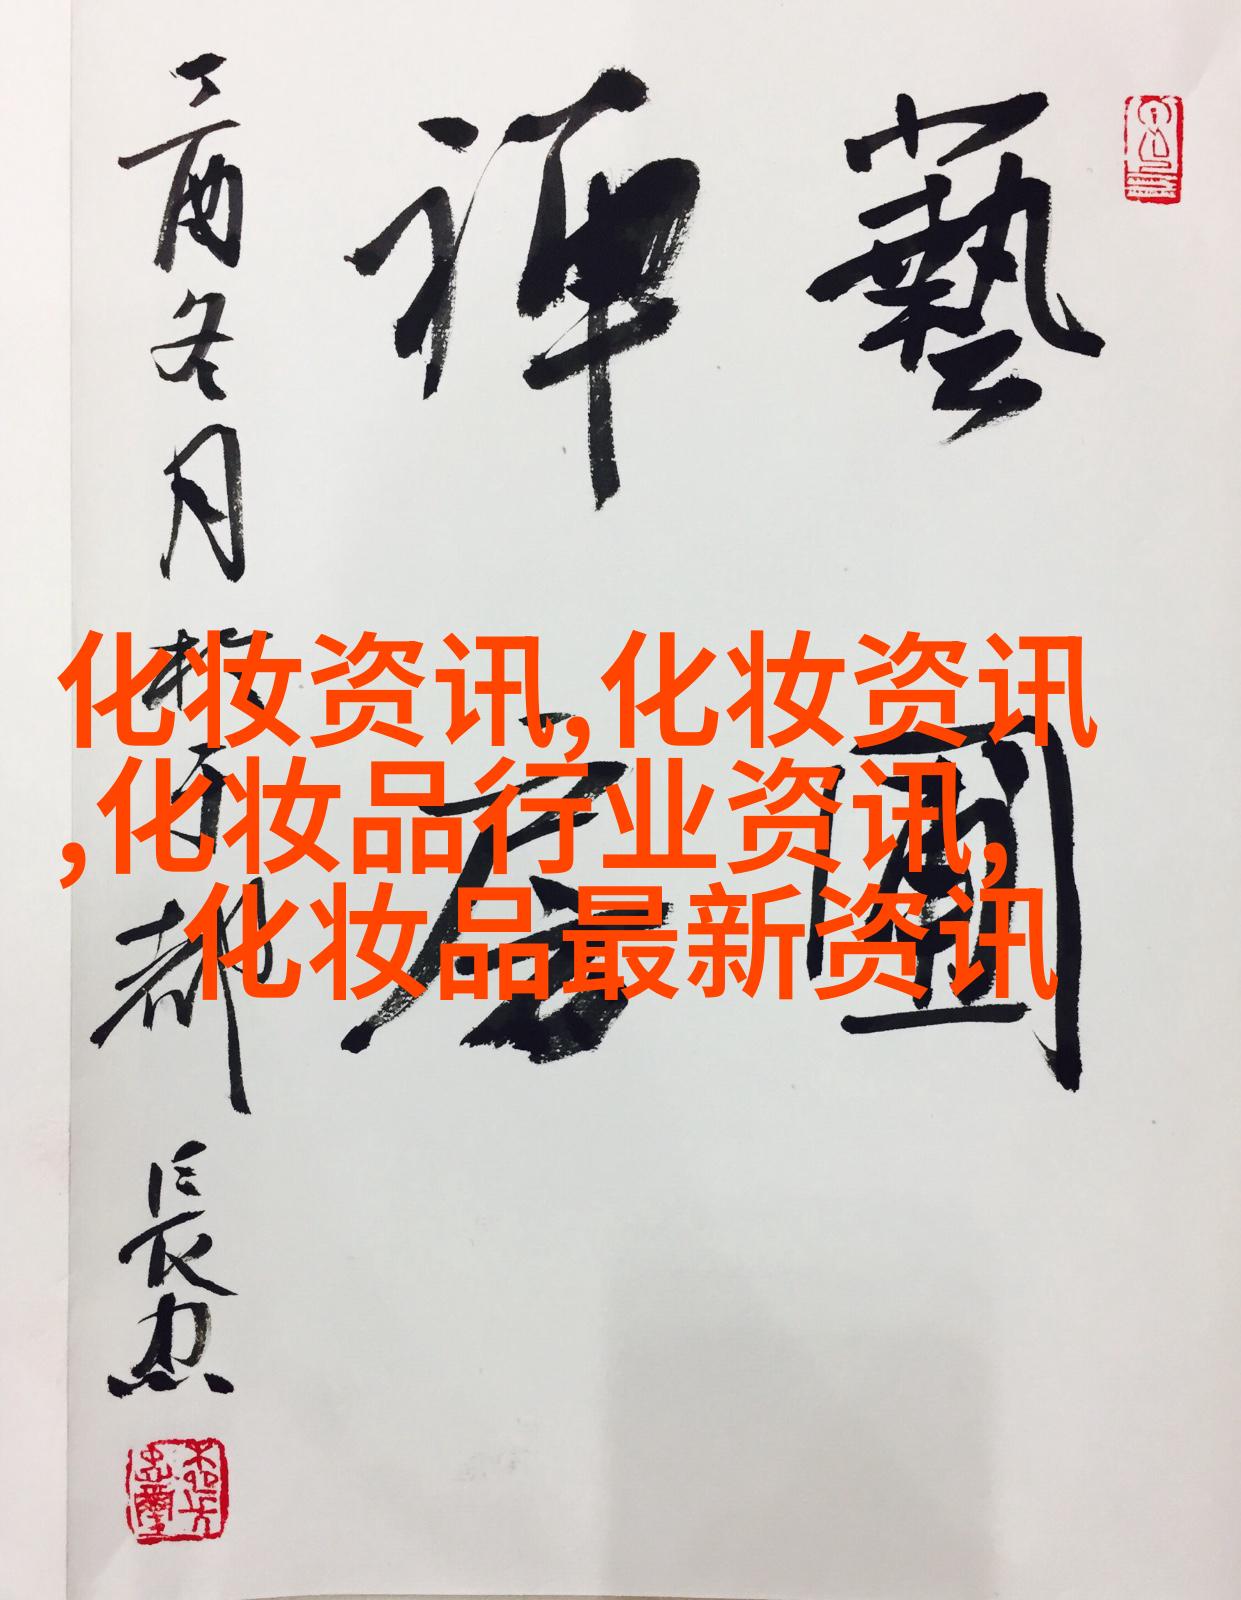 藝圃
禅居
丁酉冬月
於京都
長忠
化妆资讯,化妆资讯
,化妆品行业资讯,
化妆品最新资讯